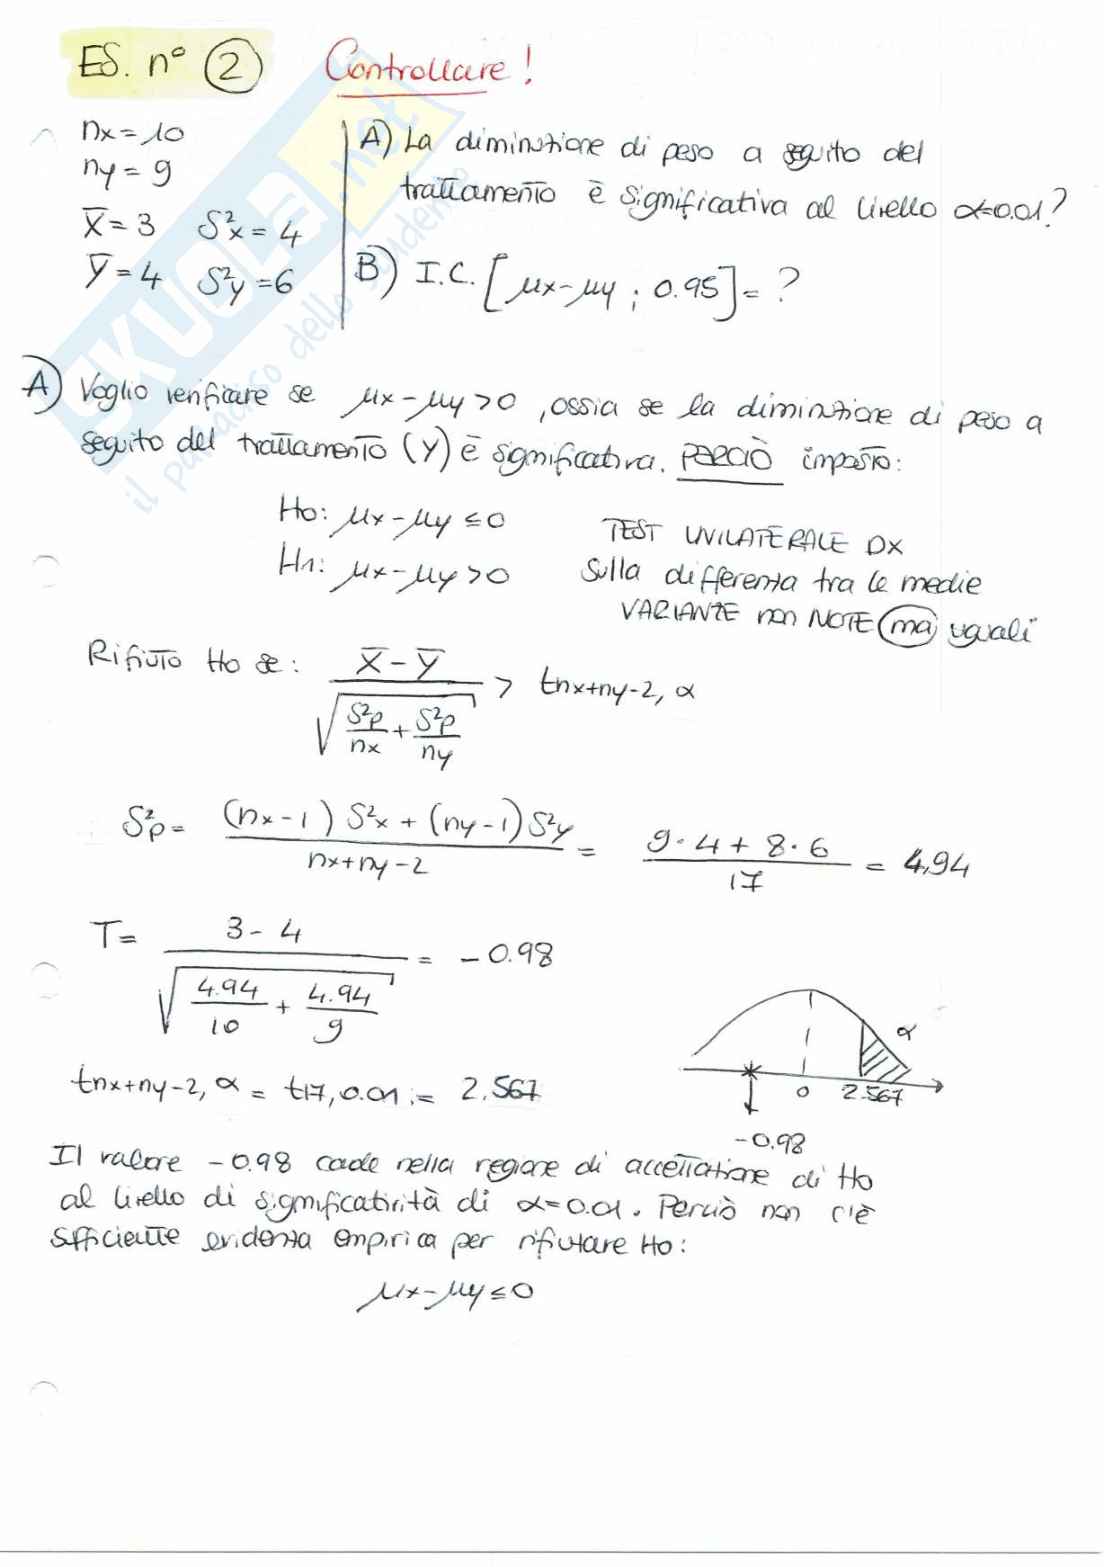 ES. n° 2 Controllare!
nx=10
ny=9
X̄=3 S²x=4
Ȳ=4 S²y=6
A) La diminuzione di peso a seguito del
trattamento è significativa al livello α=0.01?
B) I.C. [μx-μy ; 0.95]= ?
A) Voglio verificare se μx-μy>0, ossia se la diminuzione di peso a
seguito del trattamento (Y) è significativa. PERCIÒ imposto:
H0: μx-μy≤0
H1: μx-μy>0
TEST UNILATERALE DX
sulla differenza tra le medie
VARIANZE non NOTE ma uguali
Rifiuto H0 se: X̄-Ȳ / √(S²p/nx + S²p/ny) > tnx+ny-2, α
S²p= (nx-1) S²x + (ny-1) S²y / nx+ny-2 = 9·4+8·6 / 17 = 4,94
T= 3-4 / √(4.94/10 + 4.94/9) = -0.98
α
0 2.567
-0.98
tnx+ny-2, α = t17, 0.01 = 2.567
Il valore -0.98 cade nella regione di accettazione di H0
al livello di significatività di α=0.01. Perciò non c'è
sufficiente evidenza empirica per rifiutare H0:
μx-μy≤0
SKUOLA.net
il paradiso dello studente